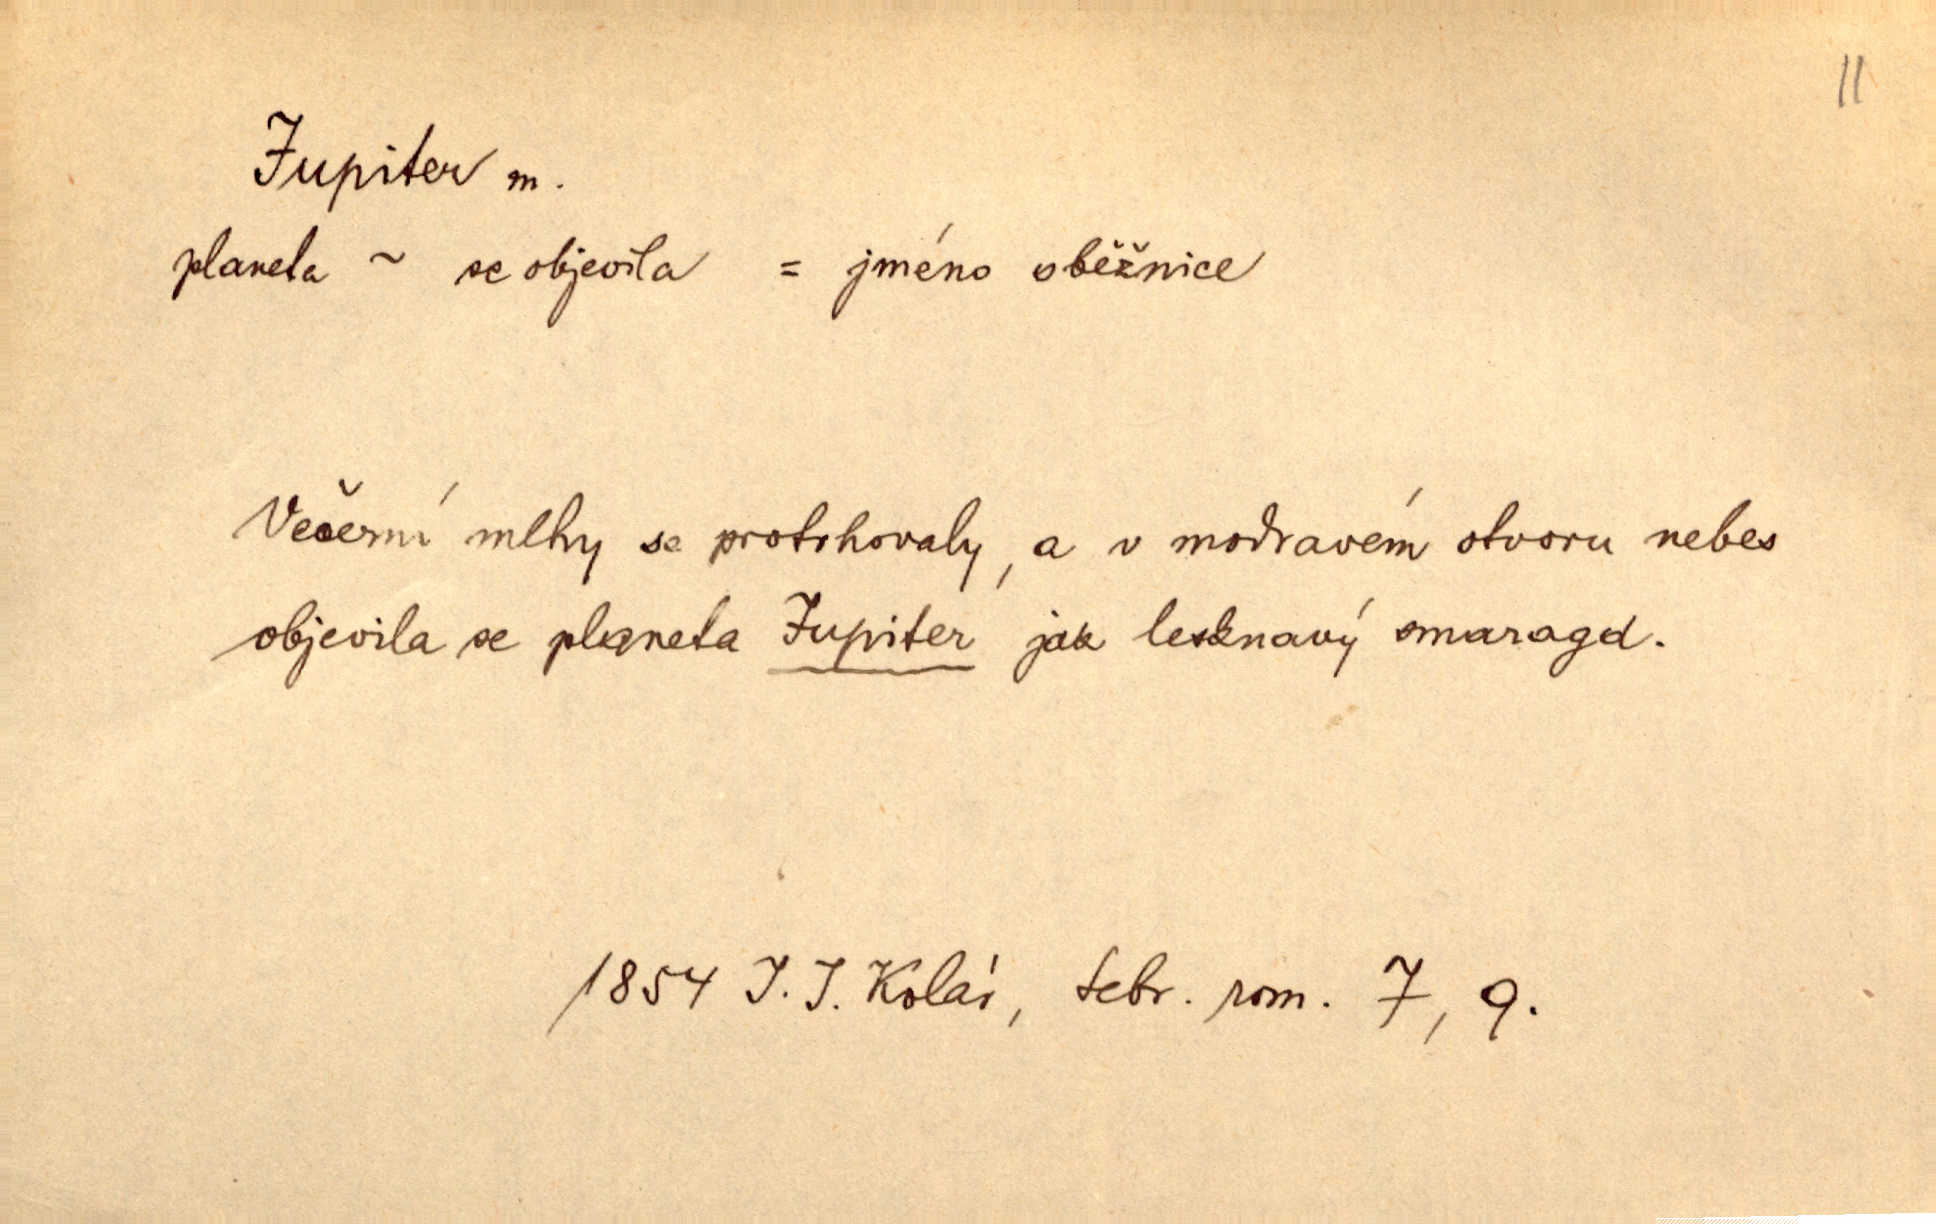 11
Jupiter m.
planeta ~ se objevila = jméno oběžnice
Večerní mlhy se protrhovaly, a v modravém otvoru nebes
objevila se planeta Jupiter jak lesknavý smaragd.
1854 J. J. Kolár, sebr. rom. 7, 9.